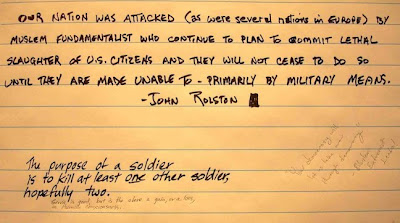 OUR NATION WAS ATTACKED (as were several nations in EUROPE) BY
MUSLEM FUNDAMENTALIST WHO CONTINUE TO PLAN TO COMMIT LETHAL
SLAUGHTER OF U.S. CITIZENS AND THEY WILL NOT CEASE TO DO SO
UNTIL THEY ARE MADE UNABLE TO - PRIMARILY BY MILITARY MEANS.
- JOHN ROLSTON
The purpose of a soldier
is to kill at least one other soldier,
hopefully two.
good, but is the above a gain, or a loss,